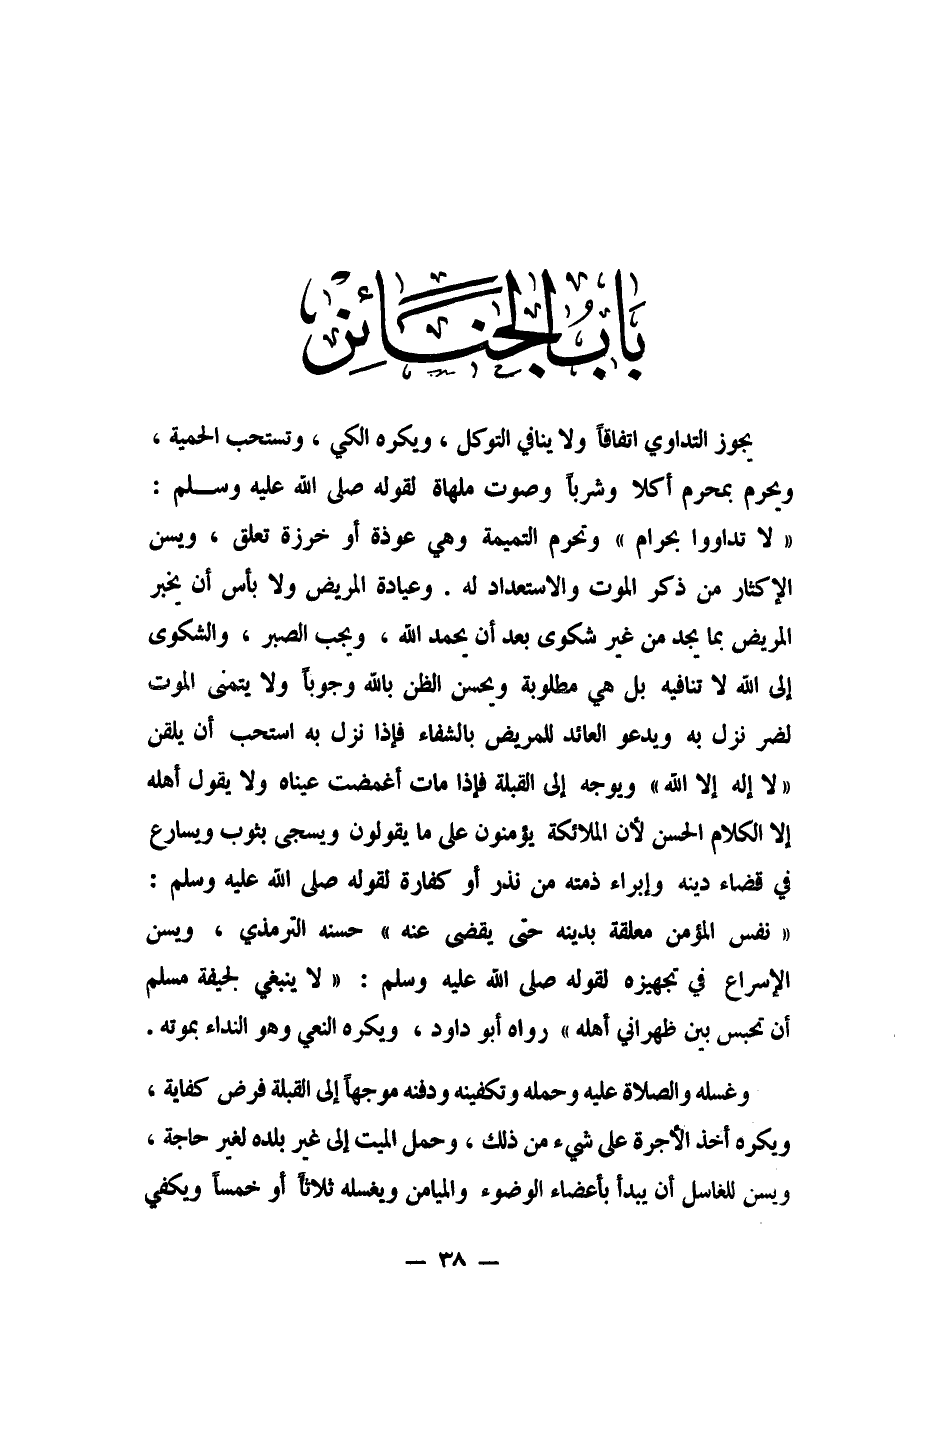 باب الجنائز
يجوز التداوي اتفاقاً ولا ينافي التوكل ، ويكره الكي ، وتستحب الحمية ،
ويحرم بمحرم أكلا وشرباً وصوت ملهاة لقوله صلى الله عليه وسلم :
« لا تداووا بحرام » وتحرم التميمة وهي عوذة أو خرزة تعلق ، ويسن
الإكثار من ذكر الموت والاستعداد له . وعيادة المريض ولا بأس أن يخبر
المريض بما يجد من غير شكوى بعد أن يحمد الله ، ويجب الصبر ، والشكوى
إلى الله لا تنافيه بل هي مطلوبة ويحسن الظن بالله وجوباً ولا يتمنى الموت
لضر نزل به ويدعو العائد للمريض بالشفاء فإذا نزل به استحب أن يلقن
« لا إله إلا الله » ويوجه إلى القبلة فإذا مات أغمضت عيناه ولا يقول أهله
إلا الكلام الحسن لأن الملائكة يؤمنون على ما يقولون ويسجى بثوب ويسارع
في قضاء دينه وإبراء ذمته من نذر أو كفارة لقوله صلى الله عليه وسلم :
« نفس المؤمن معلقة بدينه حتى يقضى عنه » حسنه الترمذي ، ويسن
الإسراع في تجهيزه لقوله صلى الله عليه وسلم : « لا ينبغي لجيفة مسلم
أن تحبس بين ظهراني أهله » رواه أبو داود ، ويكره النعي وهو النداء بموته .
وغسله والصلاة عليه وحمله وتكفينه ودفنه موجهاً إلى القبلة فرض كفاية ،
ويكره أخذ الأجرة على شيء من ذلك ، وحمل الميت إلى غير بلده لغير حاجة ،
ويسن للغاسل أن يبدأ بأعضاء الوضوء والميامن ويغسله ثلاثاً أو خمساً ويكفي
— ٣٨ —